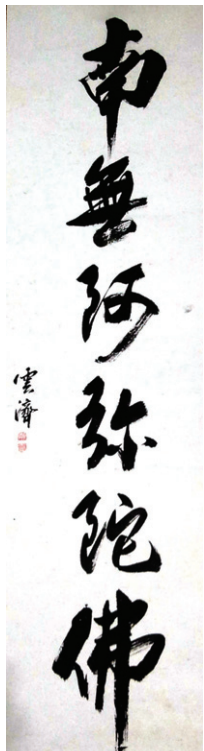 南無阿弥陀佛
雲濟